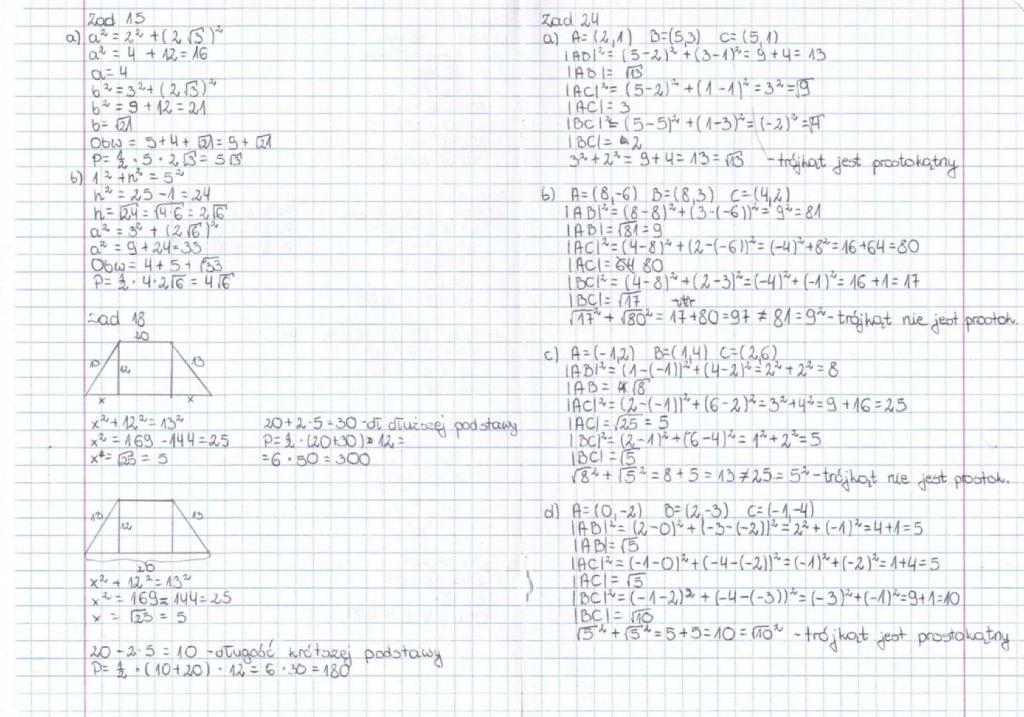 Zad 15
a) a² = 2² + (2√3)²
a² = 4 + 12 = 16
a = 4
b² = 3² + (2√3)²
b² = 9 + 12 = 21
b = √21
Obw = 5 + 4 + √21 = 9 + √21
P = ½ · 5 · 2√3 = 5√3
b) 1² + h² = 5²
h² = 25 - 1 = 24
h = √24 = √4·6 = 2√6
a² = 3² + (2√6)²
a² = 9 + 24 = 33
Obw = 4 + 5 + √33
P = ½ · 4 · 2√6 = 4√6
Zad 18
20
13 12 13
x x
x² + 12² = 13²
x² = 169 - 144 = 25
x = √25 = 5
20 + 2 · 5 = 30 - dł dłuższej podstawy
P = ½ · (20 + 30) · 12 =
= 6 · 50 = 300
13 12 13
20
x² + 12² = 13²
x² = 169 - 144 = 25
x = √25 = 5
20 - 2 · 5 = 10 - długość krótszej podstawy
P = ½ · (10 + 20) · 12 = 6 · 30 = 180
Zad 24
a) A = (2, 1) B = (5, 3) C = (5, 1)
|AB|² = (5 - 2)² + (3 - 1)² = 9 + 4 = 13
|AB| = √13
|AC|² = (5 - 2)² + (1 - 1)² = 3² = √9
|AC| = 3
|BC|² = (5 - 5)² + (1 - 3)² = (-2)² = √4
|BC| = 2
3² + 2² = 9 + 4 = 13 = √13 - trójkąt jest prostokątny
b) A = (8, -6) B = (8, 3) C = (4, 2)
|AB|² = (8 - 8)² + (3 - (-6))² = 9² = 81
|AB| = √81 = 9
|AC|² = (4 - 8)² + (2 - (-6))² = (-4)² + 8² = 16 + 64 = 80
|AC| = 80
|BC|² = (4 - 8)² + (2 - 3)² = (-4)² + (-1)² = 16 + 1 = 17
|BC| = √17
√17² + √80² = 17 + 80 = 97 ≠ 81 = 9² - trójkąt nie jest prostok.
c) A = (-1, 2) B = (1, 4) C = (2, 6)
|AB|² = (1 - (-1))² + (4 - 2)² = 2² + 2² = 8
|AB = √8
|AC|² = (2 - (-1))² + (6 - 2)² = 3² + 4² = 9 + 16 = 25
|AC| = √25 = 5
|BC|² = (2 - 1)² + (6 - 4)² = 1² + 2² = 5
|BC| = √5
√8² + √5² = 8 + 5 = 13 ≠ 25 = 5² - trójkąt nie jest prostok.
d) A = (0, -2) B = (2, -3) C = (-1, -4)
|AB|² = (2 - 0)² + (-3 - (-2))² = 2² + (-1)² = 4 + 1 = 5
|AB| = √5
|AC|² = (-1 - 0)² + (-4 - (-2))² = (-1)² + (-2)² = 1 + 4 = 5
|AC| = √5
|BC|² = (-1 - 2)² + (-4 - (-3))² = (-3)² + (-1)² = 9 + 1 = 10
|BC| = √10
√5² + √5² = 5 + 5 = 10 = √10² - trójkąt jest prostokątny